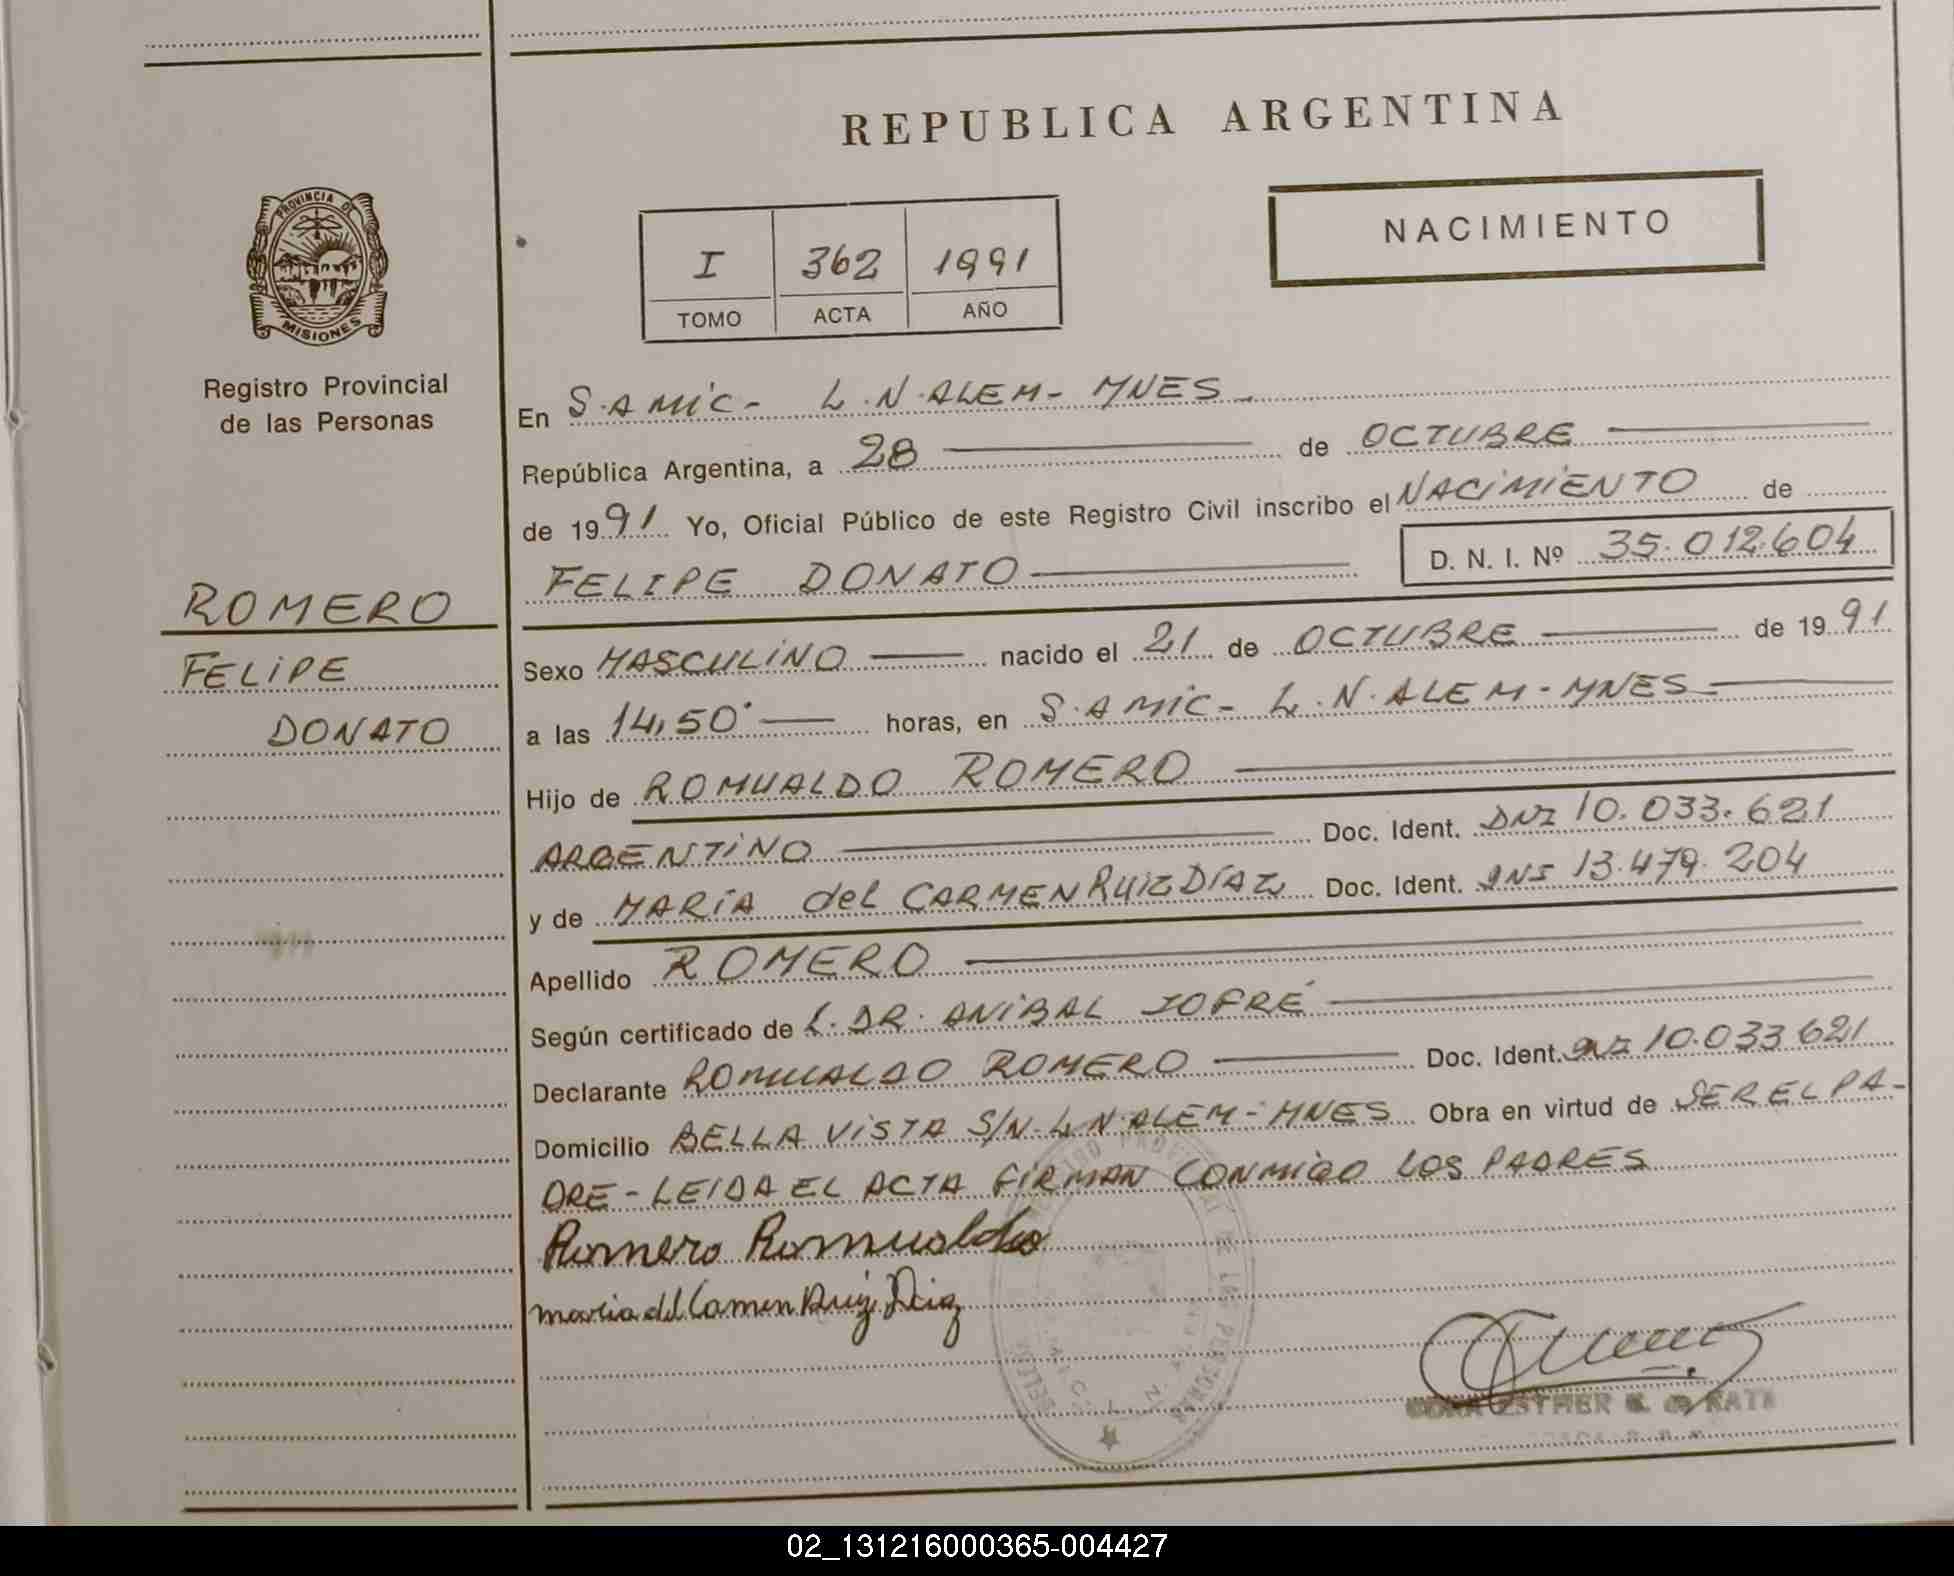 REPUBLICA ARGENTINA
NACIMIENTO
I 362 1991
TOMO ACTA AÑO
PROVINCIA DE
MISIONES
Registro Provincial
de las Personas
ROMERO
FELIPE
DONATO
En S.AMIC- L.N.ALEM- MNES
República Argentina, a 28 de OCTUBRE
de 1991 Yo, Oficial Público de este Registro Civil inscribo el NACIMIENTO de
FELIPE DONATO D. N. I. Nº 35.012.604
Sexo MASCULINO nacido el 21 de OCTUBRE de 1991
a las 14,50 horas, en S.AMIC- L.N.ALEM-MNES
Hijo de ROMUALDO ROMERO
ARGENTINO Doc. Ident. DNI 10.033.621
y de MARIA del CARMEN RUIZ DIAZ Doc. Ident. DNI 13.479.204
Apellido ROMERO
Según certificado de L. DR. ANIBAL JOFRÉ
Declarante ROMUALDO ROMERO Doc. Ident. DNI 10.033 621
Domicilio BELLA VISTA S/N-L.N.ALEM-MNES Obra en virtud de SER EL PA-
DRE-LEIDA EL ACTA FIRMAN CONMIGO LOS PADRES
Romero Romualdo
maria del Carmen Ruiz Diaz
ESTHER
02_131216000365-004427